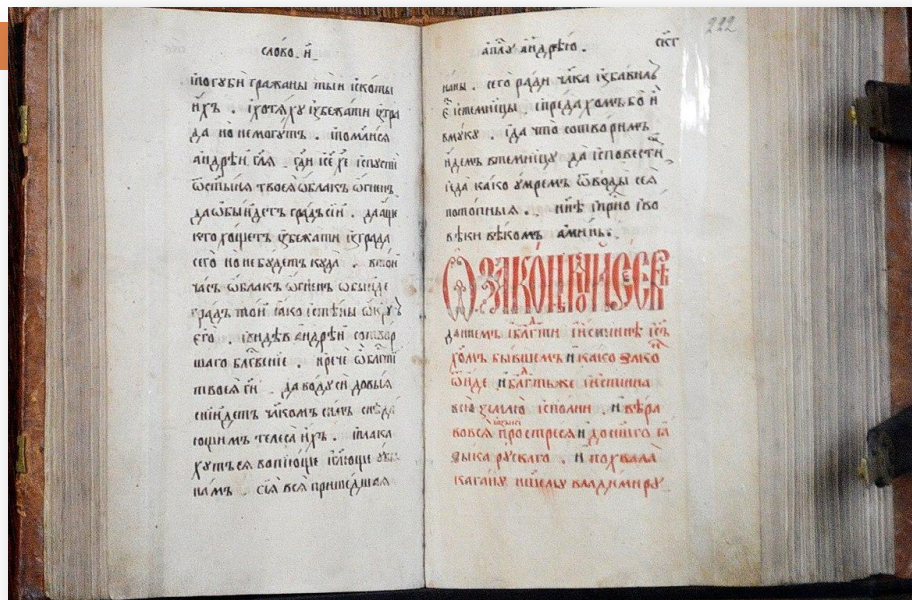 слово. и҃
погуби гражаны тыи искоты
ихъ . ихотѧху избежати изгра
да но немогутъ . помѧнисѧ
андрѣи глѧ . гди і҃се хе испусти
ѿстыни твоеѧ ѡблакъ ѡгненъ
да ѡбыидетъ градъ сіи . да аще
кто хощетъ избежати изграда
сего но не будетъ куда . втои
часъ ѡблакъ ѡгненъ ѡбыиде
градъ тои іако істѣны ѡкрутъ
его . видѣв андрѣи сотвор
шаго блгвеніе . и рече ѡблгти
твоеѧ ги . да водусіи
снидетъ снѣда
ющимъ телеса ихъ . плака
хутьсѧ вопіюще глющи увы
намъ . сіѧ всѧ пришедшаѧ
апⷭ҇лу андрѣю . скг
222
наны . сего ради чл҃ка избавилъ
е истемницы . предахомъ бо и
вмуку . да что сотворимъ
идемъ втемницу да исповести
да како умремъ ѿводы сеѧ
потопныѧ . ннѣ прно иво
вѣки вѣкомъ аминь .
Ѡ законѣ моисеѡ
даннемъ иблг҃ти иистиннѣ іс҃ъ
хо҃мъ бывшемъ и како зако
ѿиде и блг҃тьже иистинна
всю землю исполни . и вѣра
вовсѧ ꙗзыки простресѧ и до нш҃его ꙗ
зыка рускаго . и похвала
кагану ншему владимиру